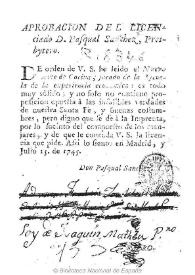 APROBACION DEL LICEN-
ciado D. Pasqual Sanchez, Pres-
bytero.
DE orden de V. S. he leido el Nuevo
Arte de Cocina, sacado de la Escue-
la de la experiencia economica: es todo
muy sólido; y no solo no contiene pro-
posicion opuesta à las infalibles verdades
de nuestra Santa Fè, y buenas costum-
bres, pero digno que se dè à la Imprenta,
por lo sucinto del
manjares, y de que le conceda V. S. la licen-
cia que pide. Assi lo siento en Madrid, y
Julio 15. de 1745.
Don Pasqual Sanchez
Soy de Joaquin
Biblioteca Nacional de España